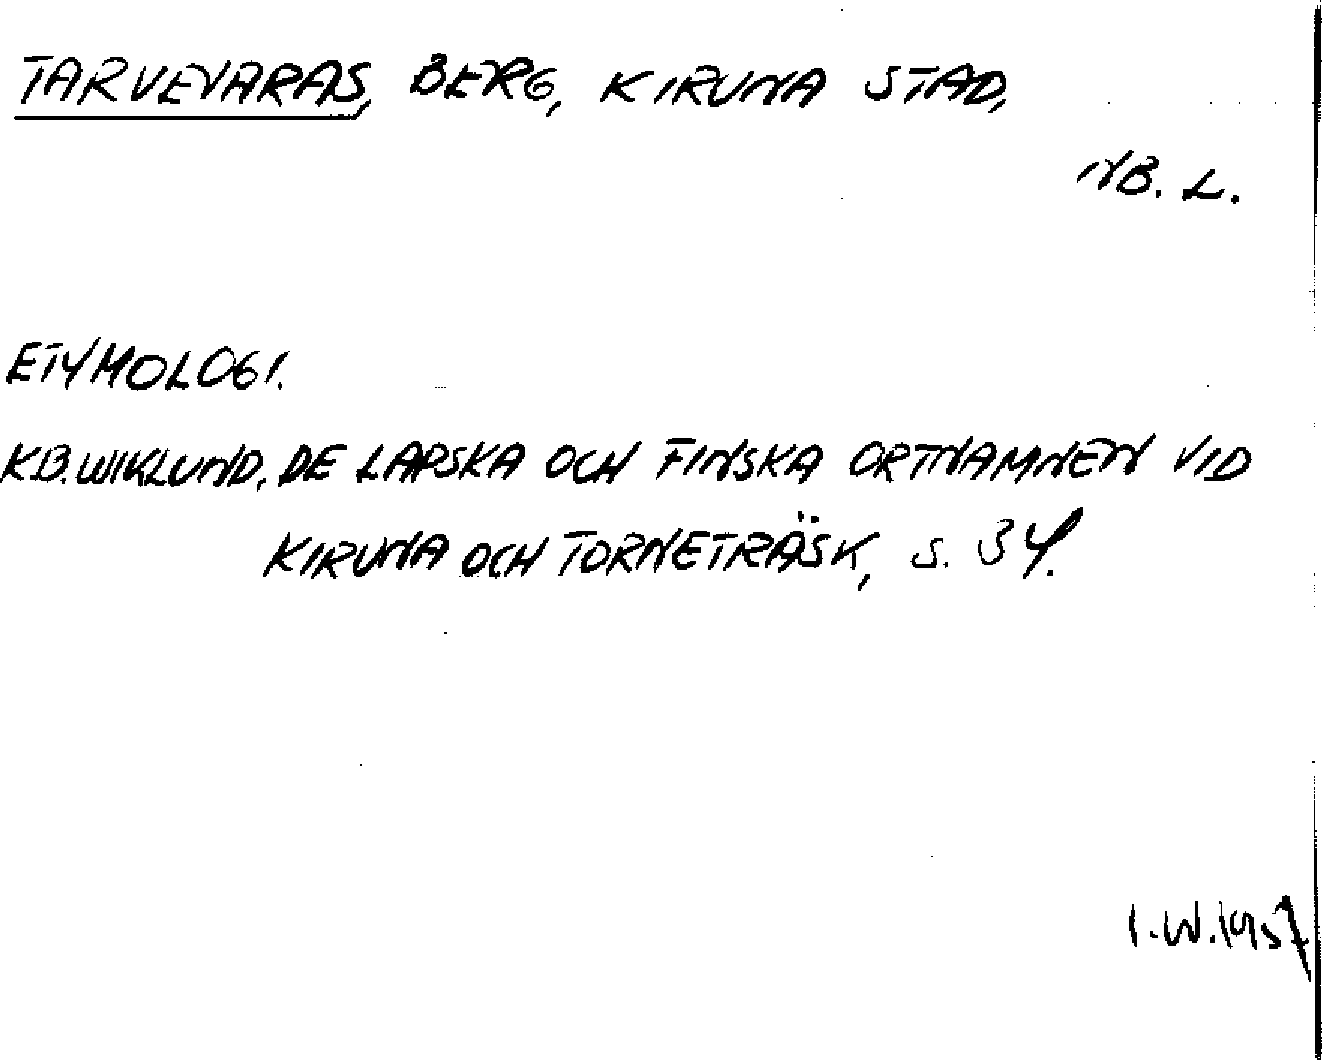 TARVEVARAS, BERG, KIRUNA STAD,
NB. L.
ETYMOLOGI.
K.B. WIKLUND, DE LAPSKA OCH FINSKA ORTNAMNEN VID
KIRUNA OCH TORNETRÄSK, S. 34.
I.W. 1957